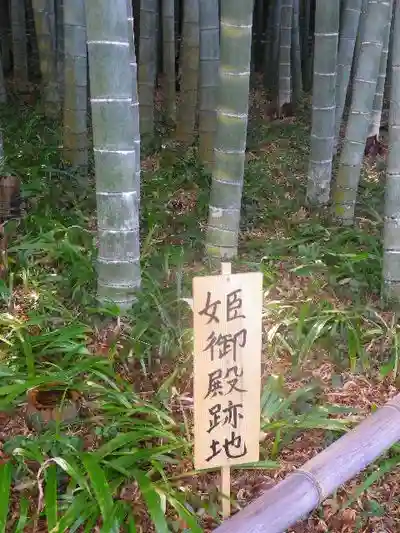 姫御殿跡地